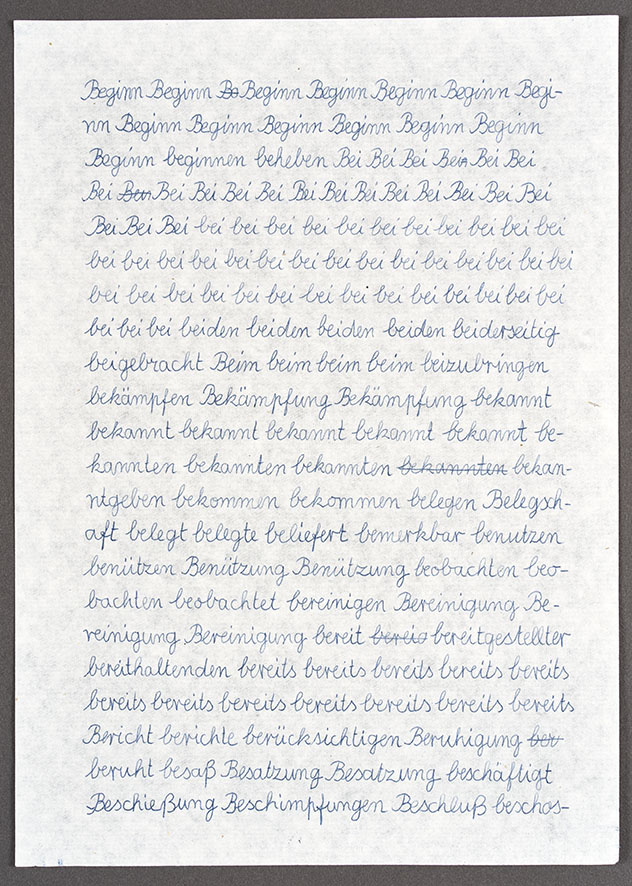 Beginn Beginn Be Beginn Beginn Beginn Beginn Begi-
nn Beginn Beginn Beginn Beginn Beginn Beginn
Beginn beginnen beheben Bei Bei Bei Bein Bei Bei
Bei Bei Bei Bei Bei Bei Bei Bei Bei Bei Bei Bei Bei
Bei Bei Bei bei bei bei bei bei bei bei bei bei bei bei
bei bei bei bei bei bei bei bei bei bei bei bei bei bei bei
bei bei bei bei bei bei bei bei bei bei bei bei bei bei
bei bei bei beiden beiden beiden beiden beiderseitig
beigebracht Beim beim beim beim beizubringen
bekämpfen Bekämpfung Bekämpfung bekannt
bekannt bekannt bekannt bekannt bekannt be-
kannten bekannten bekannten bekannten bekan-
ntgeben bekommen bekommen belegen Belegsch-
aft belegt belegte beliefert bemerkbar benutzen
benützen Benützung Benützung beobachten beo-
bachten beobachtet bereinigen Bereinigung Be-
reinigung Bereinigung bereit bereis bereitgestellter
bereithaltenden bereits bereits bereits bereits bereits
bereits bereits bereits bereits bereits bereits bereits
Bericht berichte berücksichtigen Beruhigung ber
beruht besaß Besatzung Besatzung beschäftigt
Beschießung Beschimpfungen Beschluß beschos-